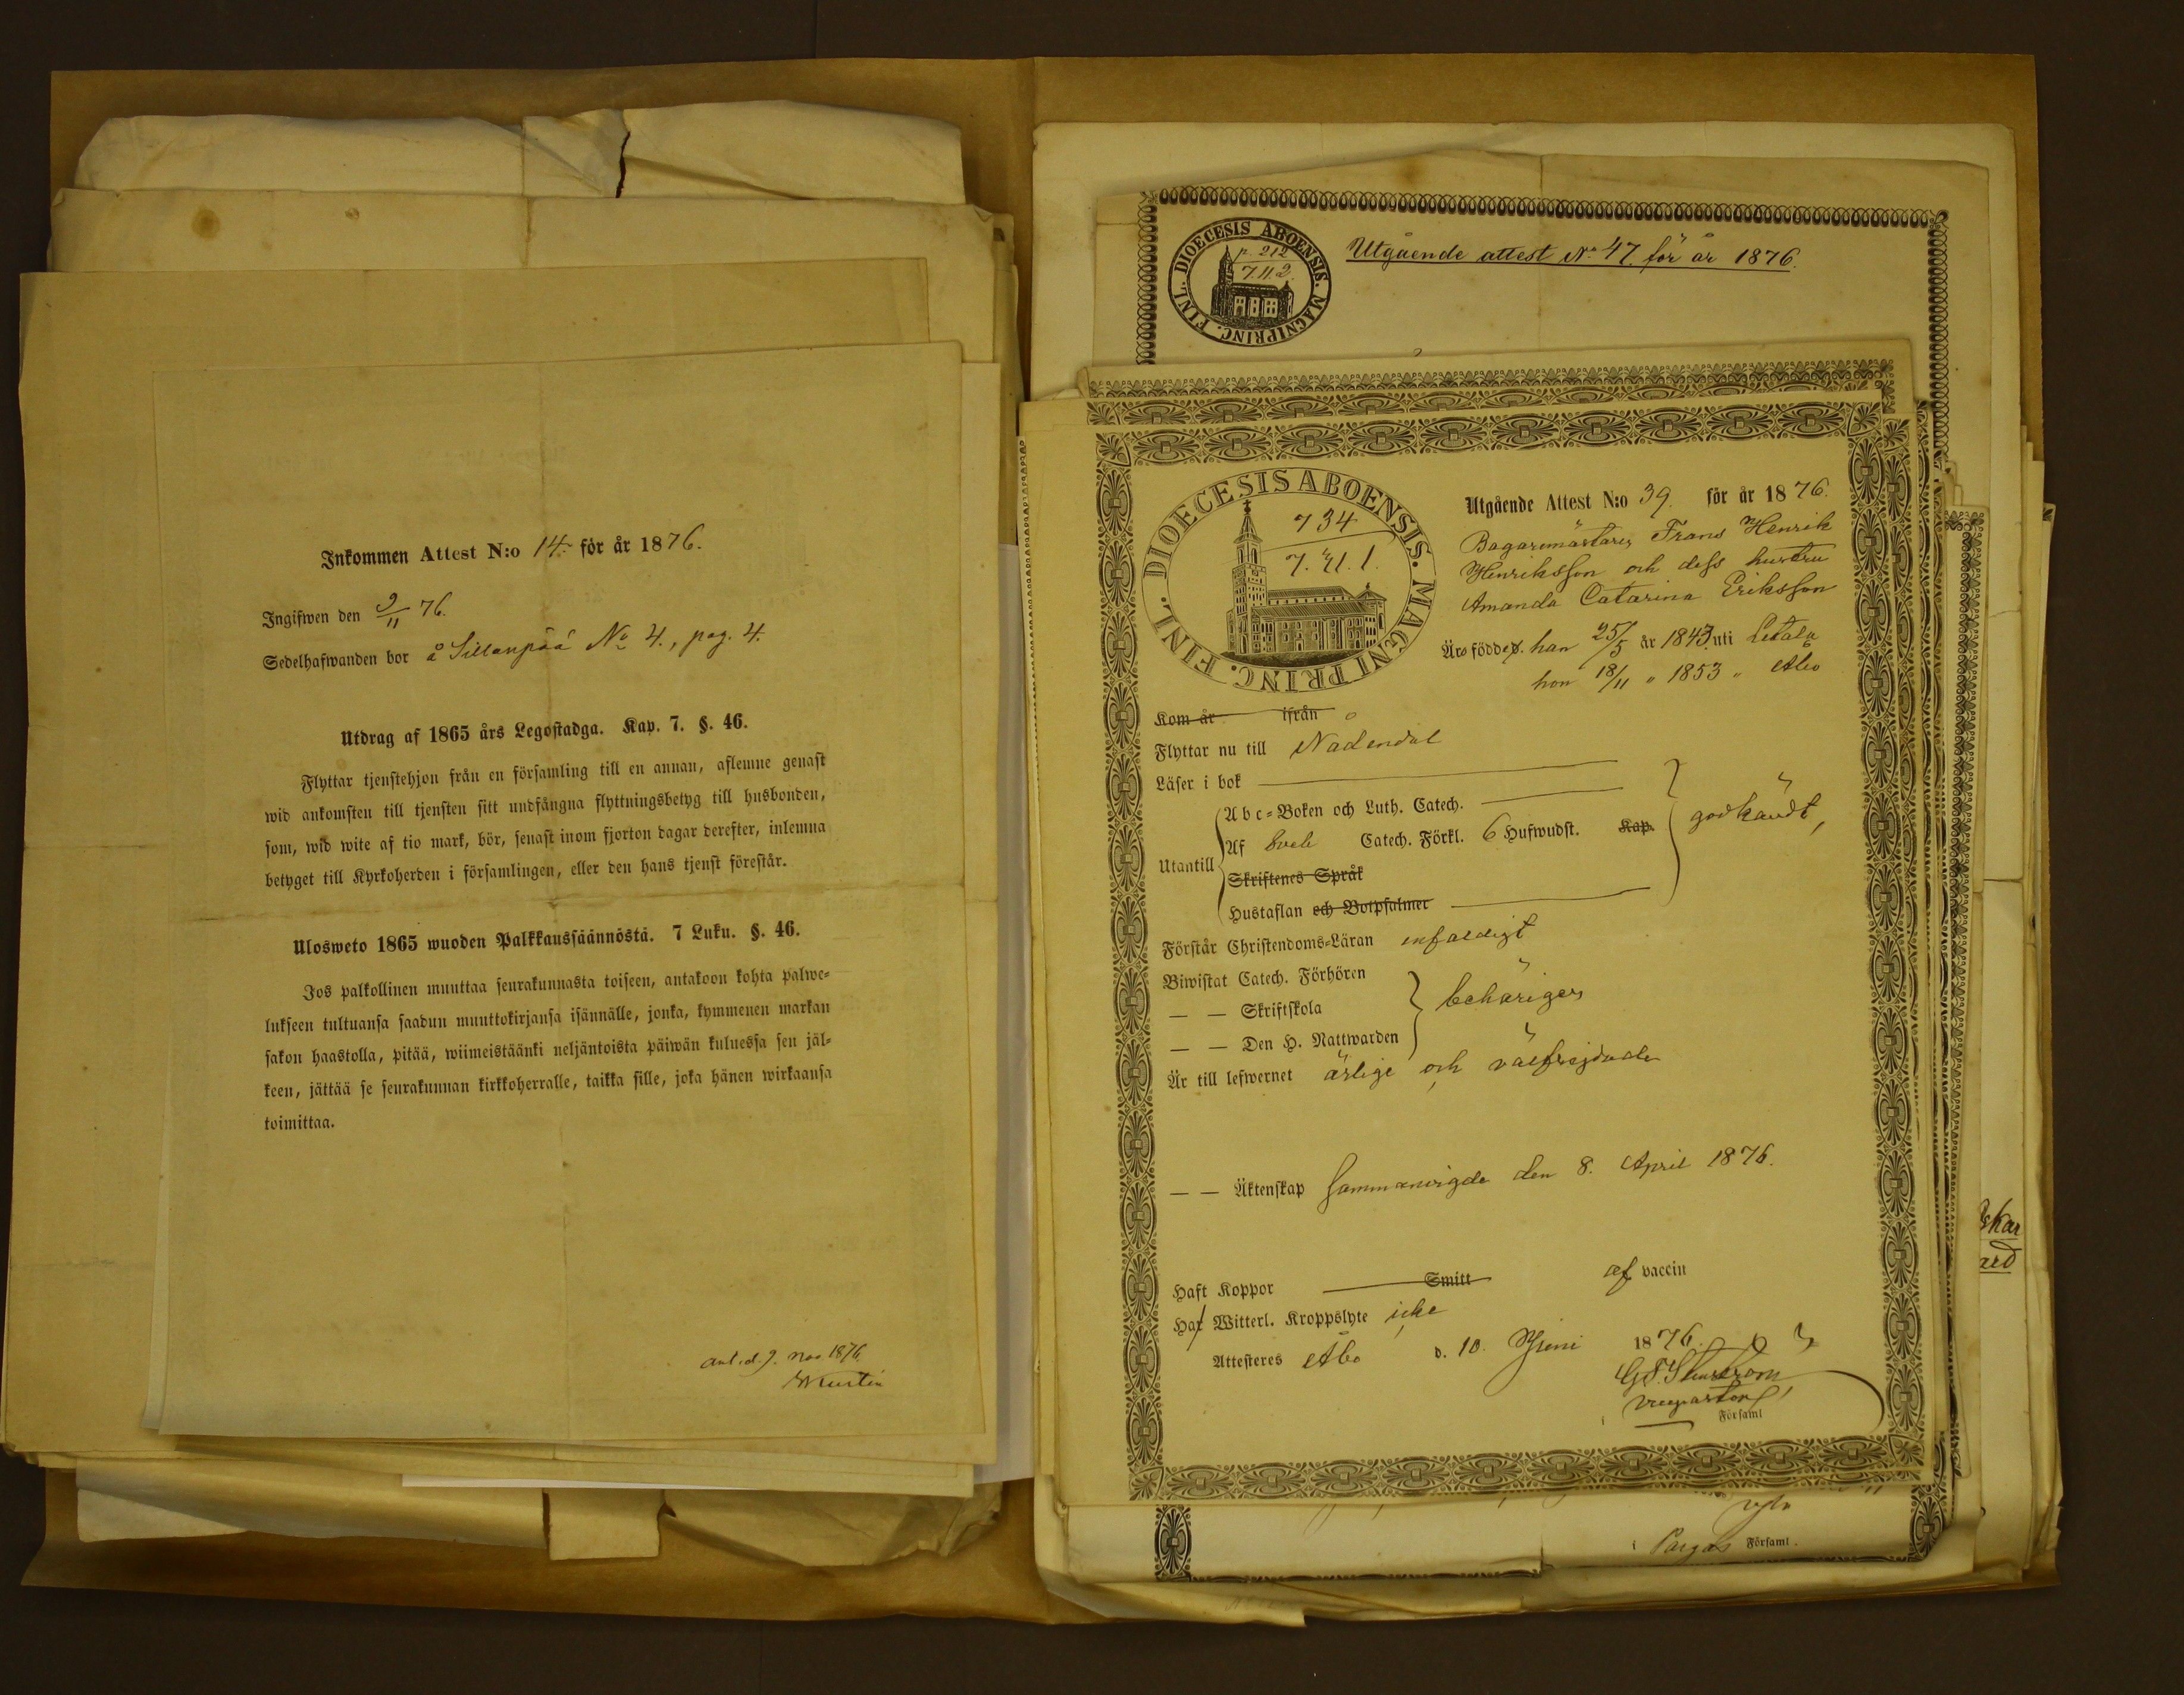 Inkommen Attest N:o 14. för år 1876.
Ingifwen den 9/11 76.
Sedelhafwanden bor å Sillanpää No 4., pag. 4.
Utdrag af 1865 års Legostadga. Kap. 7. §. 46.
Flyttar tjenstehjon från en församling till en annan, aflemne genast
wid ankomsten till tjensten sitt undfångna flyttningsbetyg till husbonden,
som, wid wite af tio mark, bör, senast inom fjorton dagar derefter, inlemna
betyget till Kyrkoherden i församlingen, eller den hans tjenst förestår.
Ulosweto 1865 wuoden Palkkaussäännöstä. 7 Luku. §. 46.
Jos palkollinen muuttaa seurakunnasta toiseen, antakoon kohta palwe-
lukseen tultuansa saadun muuttokirjansa isännälle, jonka, kymmenen markan
sakon haastolla, pitää, wiimeistäänki neljäntoista päiwän kuluessa sen jäl-
keen, jättää se seurakunnan kirkkoherralle, taikka sille, joka hänen wirkaansa
toimittaa.
ant. d. 9. nov 1876.
DIOECESIS ABOENSIS. MAGNI PRINC. FINL.
p. 212
7.11.2.
Utgående attest No 47. för år 1876.
DIOECESIS ABOENSIS. MAGNI PRINC. FINL.
734
Utgående Attest N:o 39. för år 1876.
Bagaremästaren Frans Henrik
Henriksson och dess hustru
Amanda Catarina Eriksson
Äro födde, han 25/5 år 1843 uti Letala
hon 18/11 " 1853 " Åbo
Kom år ifrån
Flyttar nu till Nådendal
Läser i bok
Abc-Boken och Luth. Catech.
Utantill Af Sveb Catech. Förkl. 6 Hufwudst. Kap. godkändt,
Skriftenes Språk
Hustaflan och Botpsalmer
Förstår Christendoms-Läran enfaldigt
Biwistat Catech. Förhören
— — Skriftskola behörigen
— — Den H. Nattwarden
Är till lefwernet ärlige och välfrejdade
— — Äktenskap sammanvigde den 8. April 1876.
Haft Koppor Smitt af vaccin
Har Witterl. Kroppslyte icke
Attesteres Åbo d. 10. Juni 1876.
vicepastor
Församl
i Pargas Församl.
skar
ard